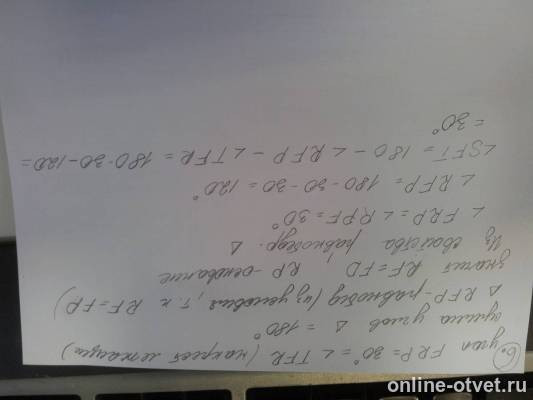 6. угол FRP = 30° = ∠TFR (накрест лежащие)
сумма углов Δ = 180°
Δ RFP - равнобед (из условия, т.к RF = FP)
значит RF = FP RP - основание
Из свойства равнобедр. Δ
∠ FRP = ∠ RPF = 30°
∠ RFP = 180-30-30 = 120°
∠SFT = 180 - ∠ RFP - ∠TFR = 180-30-120 =
= 30°
online-otvet.ru